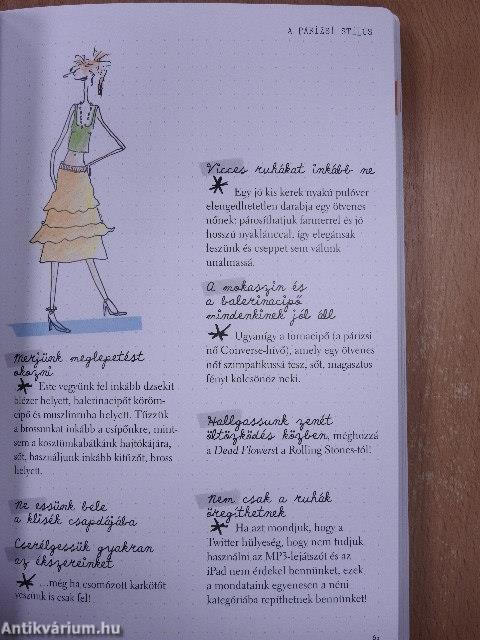 A PÁRIZSI STÍLUS
Merjünk meglepetést
okozni
Este vegyünk fel inkább dzsekit
blézer helyett, balerinacipőt köröm-
cipő és muszlinruha helyett. Tűzzük
a brossunkat inkább a csípőnkre, mint-
sem a kosztümkabátkánk hajtókájára,
sőt, használjunk inkább kitűzőt, bross
helyett.
Ne essünk bele
a klisék csapdájába
Cserélgessük gyakran
az ékszereinket
...még ha csomózott karkötőt
veszünk is csak fel!
Vicces ruhákat inkább ne
Egy jó kis kerek nyakú pulóver
elengedhetetlen darabja egy ötvenes
nőnek: párosíthatjuk farmerrel és jó
hosszú nyaklánccal, így elegánsak
leszünk és cseppet sem válunk
unalmassá.
A mokaszin és
a balerinacipő
mindenkinek jól áll
Ugyanígy a tornacipő (a párizsi
nő Converse-hívő), amely egy ötvenes
nőt szimpatikussá tesz, sőt, magasztos
fényt kölcsönöz neki.
Hallgassunk zenét
öltözködés közben, méghozzá
a Dead Flowerst a Rolling Stones-tól!
Nem csak a ruhák
öregíthetnek
Ha azt mondjuk, hogy a
Twitter hülyeség, hogy nem tudjuk
használni az MP3-lejátszót és az
iPad nem érdekel bennünket, ezek
a mondataink egyenesen a néni
kategóriába repíthetnek bennünket!
Antikvárium.hu